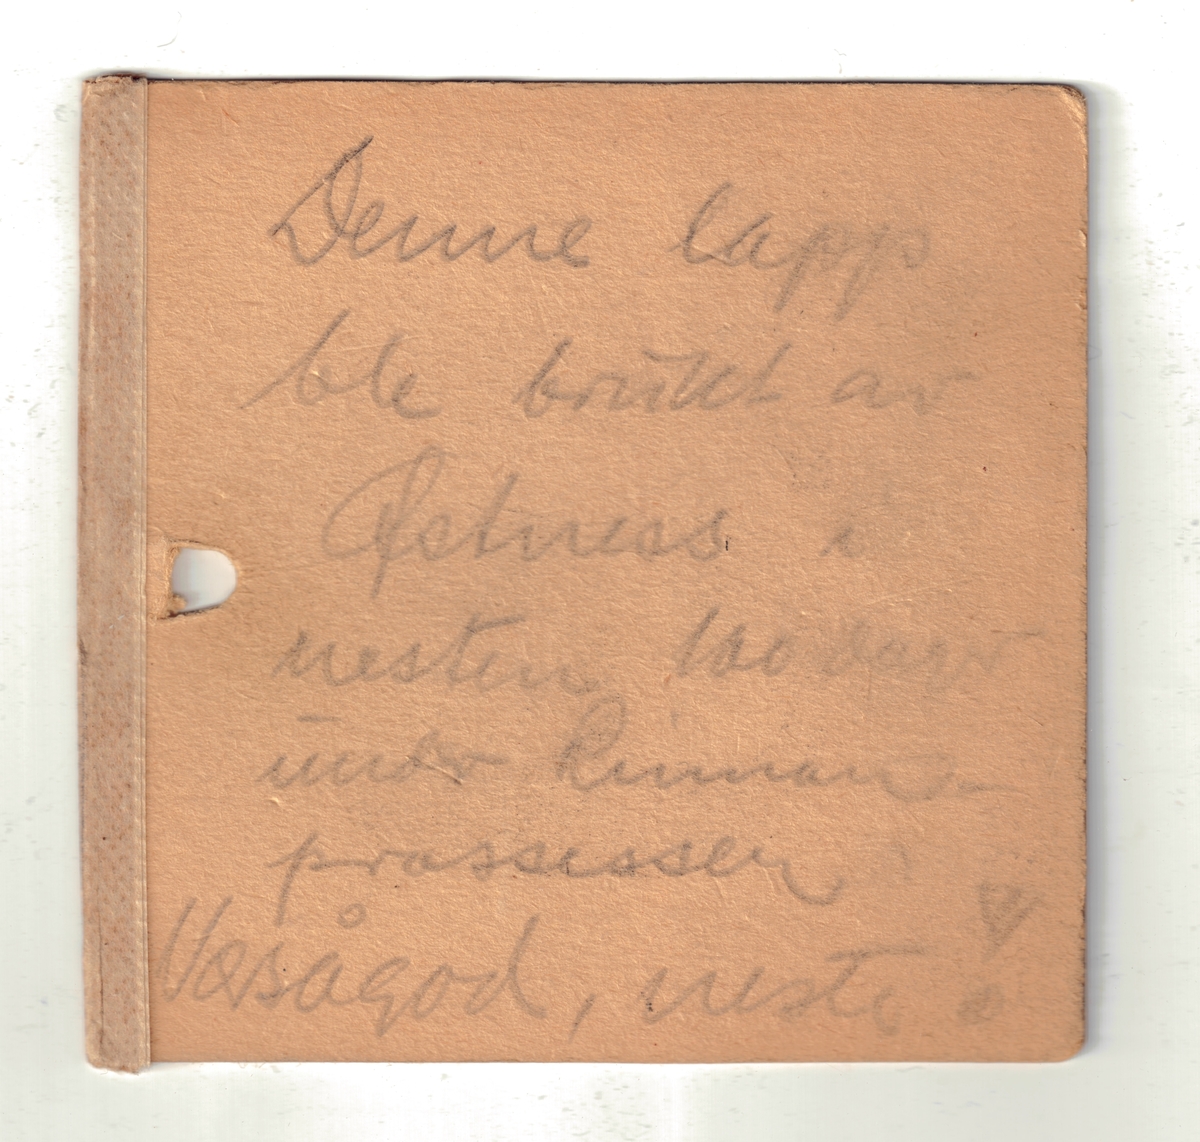 Denne lapp
ble brukt av
Østness i
nesten 100 dager
under Rinnan-
prossessen
Værsågod, neste!